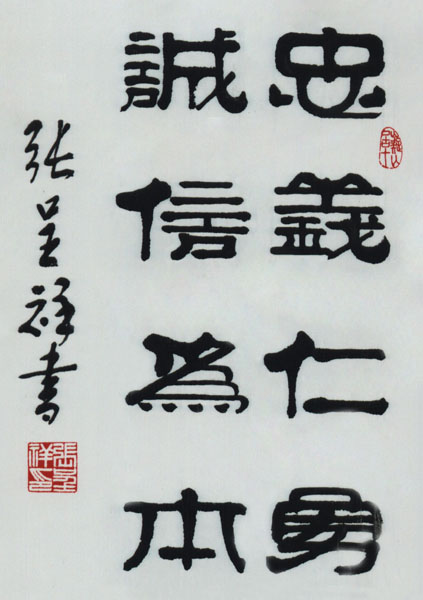 忠義仁勇
誠信為本
張呈祥書
張呈祥印